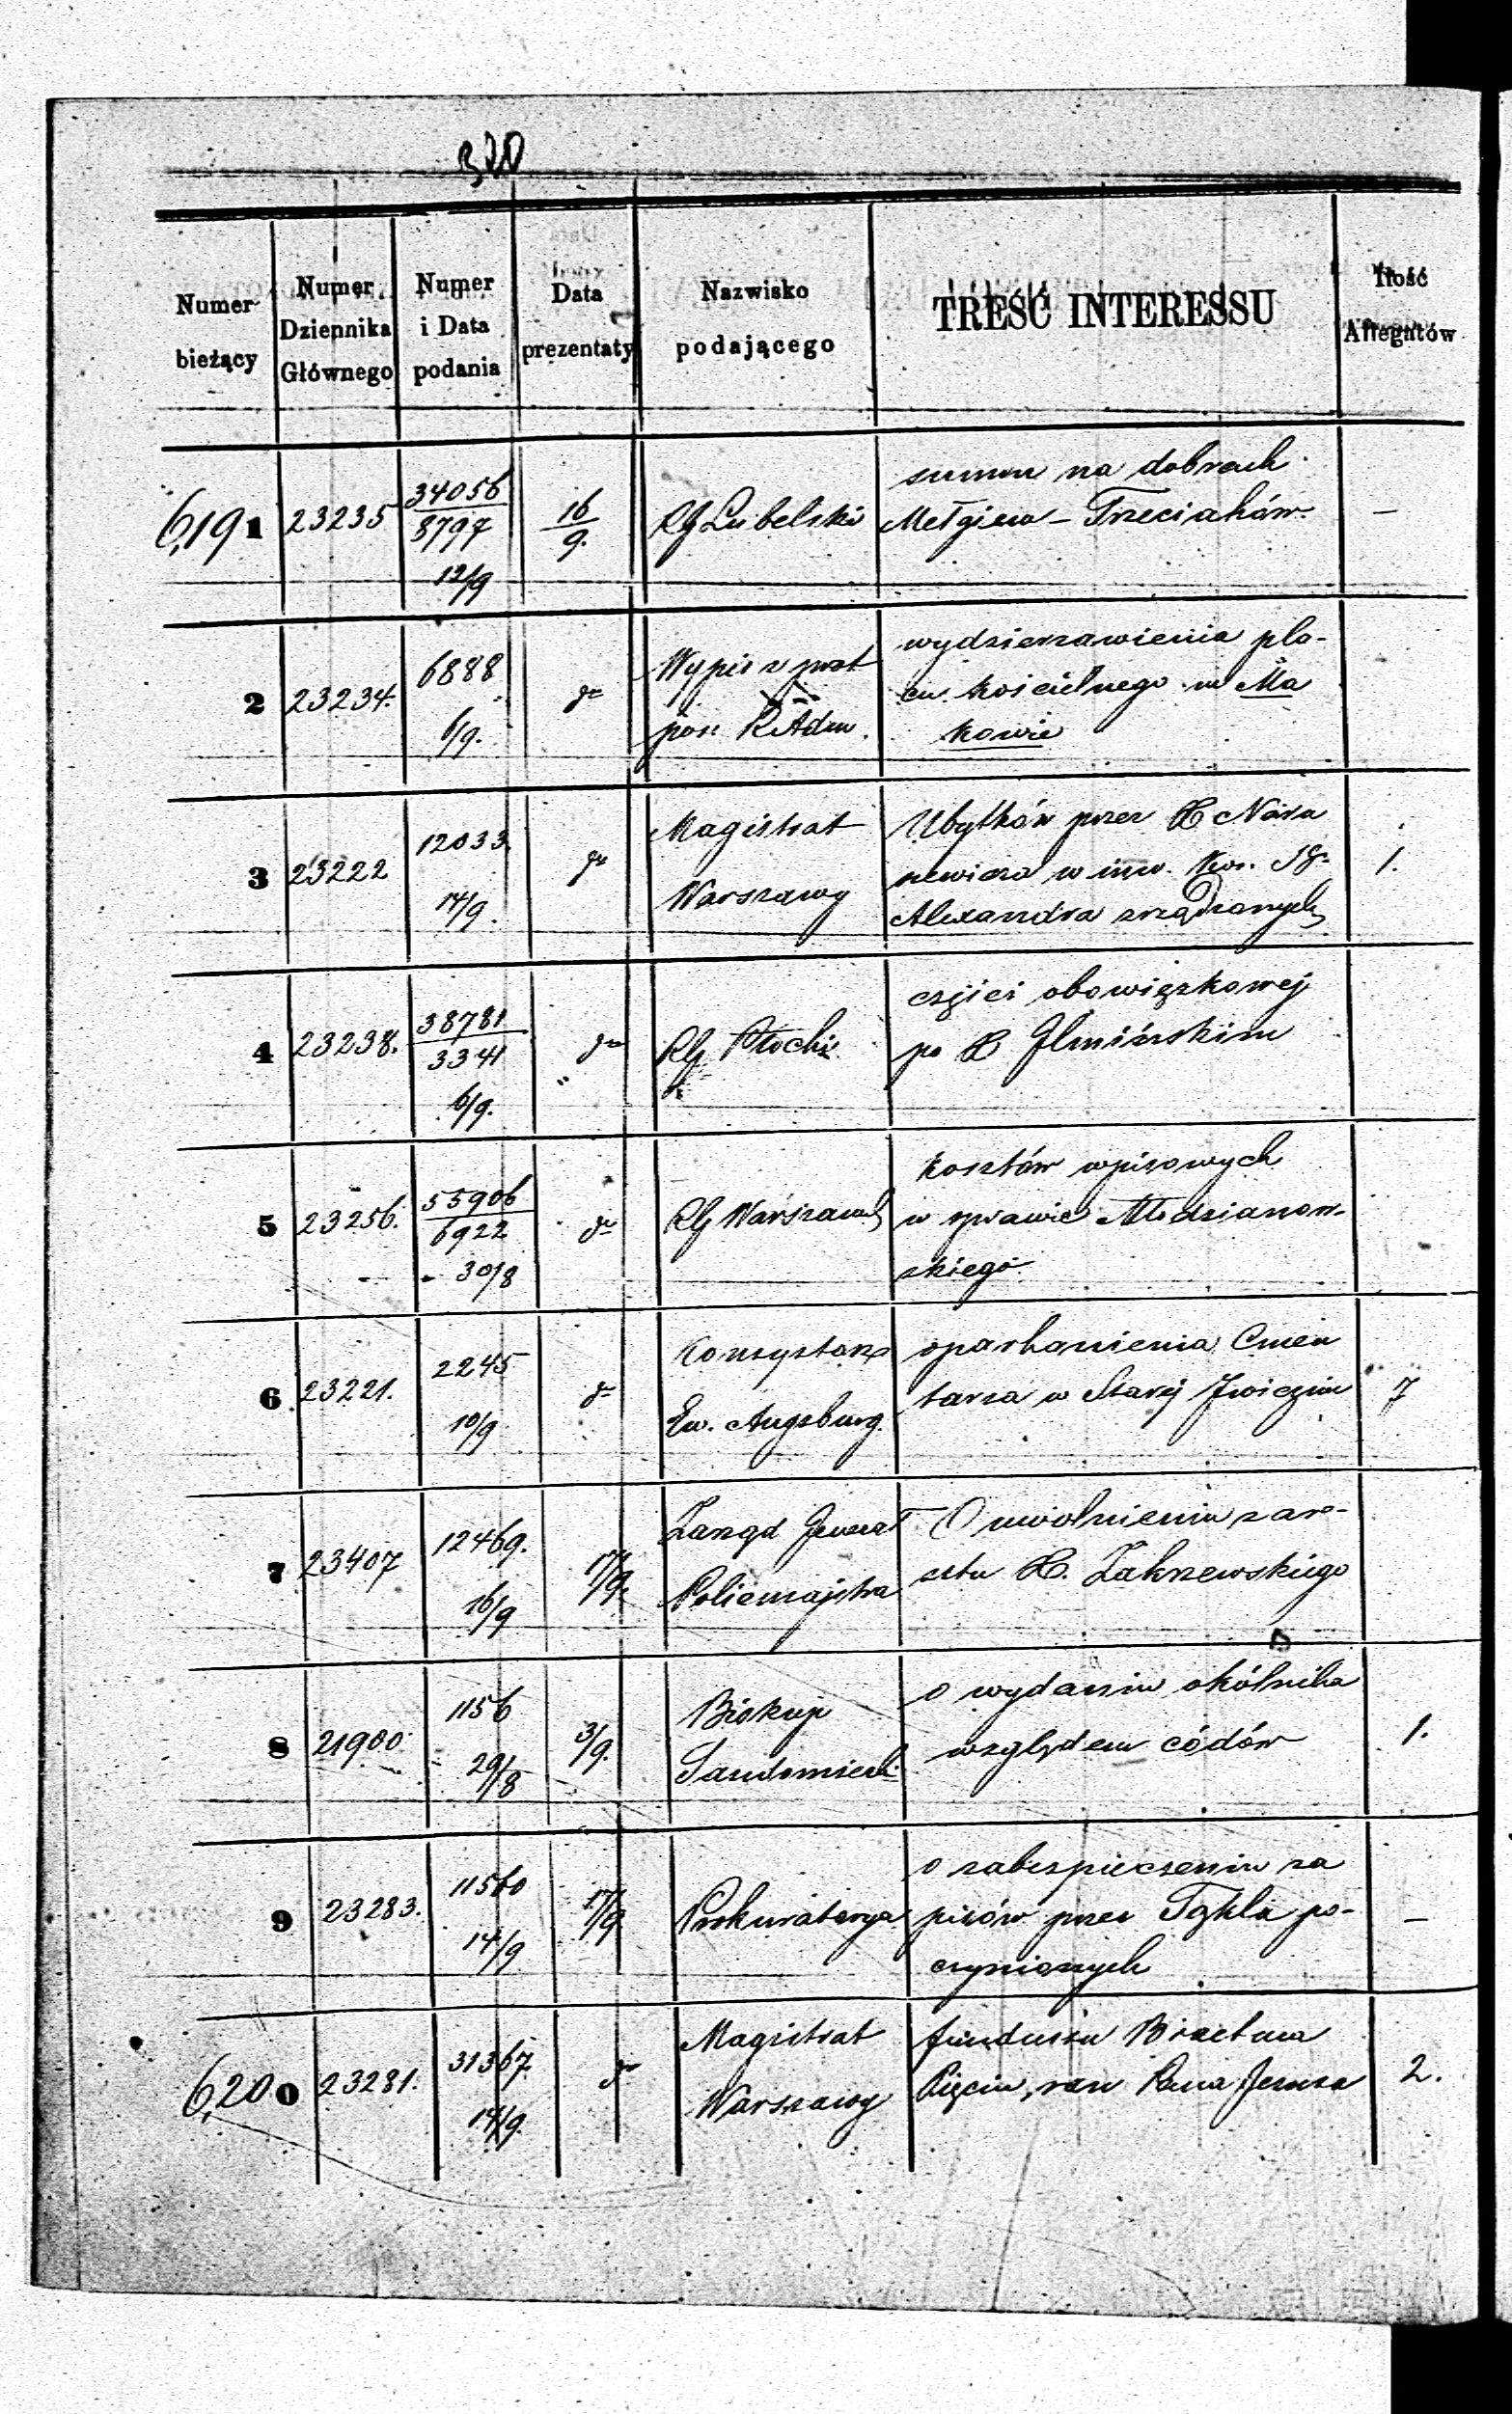 320
Numer bieżący | Numer Dziennika Głównego | Numer i Data podania | Data prezentaty | Nazwisko podającego | TREŚĆ INTERESSU | Ilość Allegatów
6,191 | 23235 | 34056/8797 12/9 | 16/9. | RG Lubelski | summ na dobrach Mełgiew – Trzeciaków. | –
2 | 23234. | 6888 6/9. | do | Wypis z prot pos RAdm. | wydzierzawienia placu kościelnego w Makowie
3 | 23222 | 12033. 14/9. | do | Magistrat Warszawy | Ubytków przez X Naruszewicza w inw. Kos. Sgo Alexandra zrządzonych | 1.
4 | 23238. | 38781/3341 6/9. | do | RG Płocki | części obowiązkowej po X
5 | 23256. | 55906/6922 30/8 | do | RG Warszaws | kosztów wpisowych w sprawie Młodzianowskiego
6 | 23221. | 2245 10/9 | do | Konsystorz Ew. Augsburg. | oparkanienia Cmentarza w Starej | 7
7 | 23407 | 12469. 16/9 | 17/9. | Zarząd Generał Policmajstra | O uwolnieniu z aresztu X. Zakrzewskiego
8 | 21900. | 1156 29/8 | 3/9. | Biskup Sandomiersk. | o wydaniu okólnika względem códów | 1.
9 | 23283. | 11560 14/9 | 17/9 | Prokuratorya | o zabezpieczeniu zapisów przez Tykla poczynionych | –
6,200 | 23281. | 31367. 14/9. | do | Magistrat Warszawy | funduszu Bractwa Pięciu ran Pana Jezusa | 2.